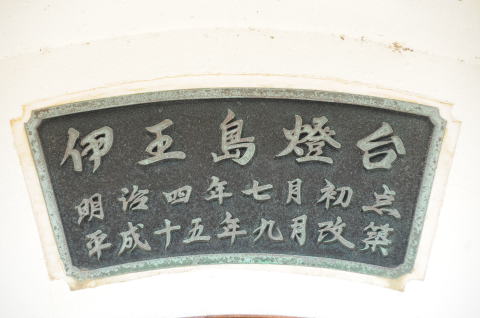 伊王島燈台
明治四年七月初点
平成十五年九月改築